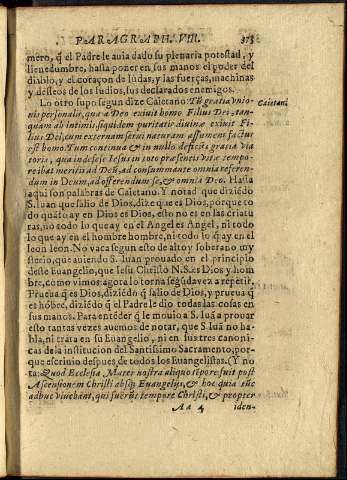 PARAGRAPH. VIII. 373
mero, q̃ el Padre le auia dado su plenaria potestad, y
llenedumbre, hasta poner en sus manos el poder del
diablo, y el coraçon de Iudas, y las fuerças, machinas
y desseos de los Iudios, sus declarados enemigos.
Lo otro supo segun dize Caietano Tũ gratia vnio- Caietan.
nis personalis, qua a Deo exiuit homo Filius Dei, tan-
quam ab intimis, siquidem puritate diuinæ exiuit Fi-
lius Dei, cum externam serui naturam assumens factus
est homo. Tum continua & in nullo deficiẽs gratia via
toris, qua indefesse Iesus in toto præsentis vitæ tempo-
re ibat meritis ad Deũ, ad consummante omnia referen-
dum in Deum, ad offerendum se, & omnia Deo. Hasta
aqui son palabras de Caietano. Y notad que diziẽdo
S. Iuan que salio de Dios, dize que es Dios, porque to
do quãto ay en Dios es Dios, esto no es en las criatu
ras, no todo lo que ay en el Angel es Angel, ni todo
lo que ay en el hombre hombre, ni todo lo q̃ ay en el
leon leon. No vaca segun esto de alto y soberano my
sterio, que auiendo S. Iuan prouado en el principio
deste Euangelio, que Iesu Christo N. S. es Dios y hom
bre, como vimos agora lo torna segũda vez a repetir.
Prueua q̃ es Dios, diziẽdo q̃ salio de Dios, y prueua q̃
es hõbre, diziẽdo q̃ el Padre le dio todas las cosas en
sus manos. Para entẽder q̃ le mouio a S. Iuã a prouar
esto tantas vezes auemos de notar, que S. Iuã no ha-
bla, ni trata en su Euangelio, ni en sus tres canoni-
cas de la institucion del Santissimo Sacramento, por-
que escriuio despues de todos los Euangelistas. (Y no
ta: Quod Ecclesia Mater nostra aliquo tẽpore fuit post
Ascensionem Christi absq; Euangelijs, & hoc quia tũc
adhuc viuebant, qui fuerũt tempore Christi, & propter
Aa 4 iden-